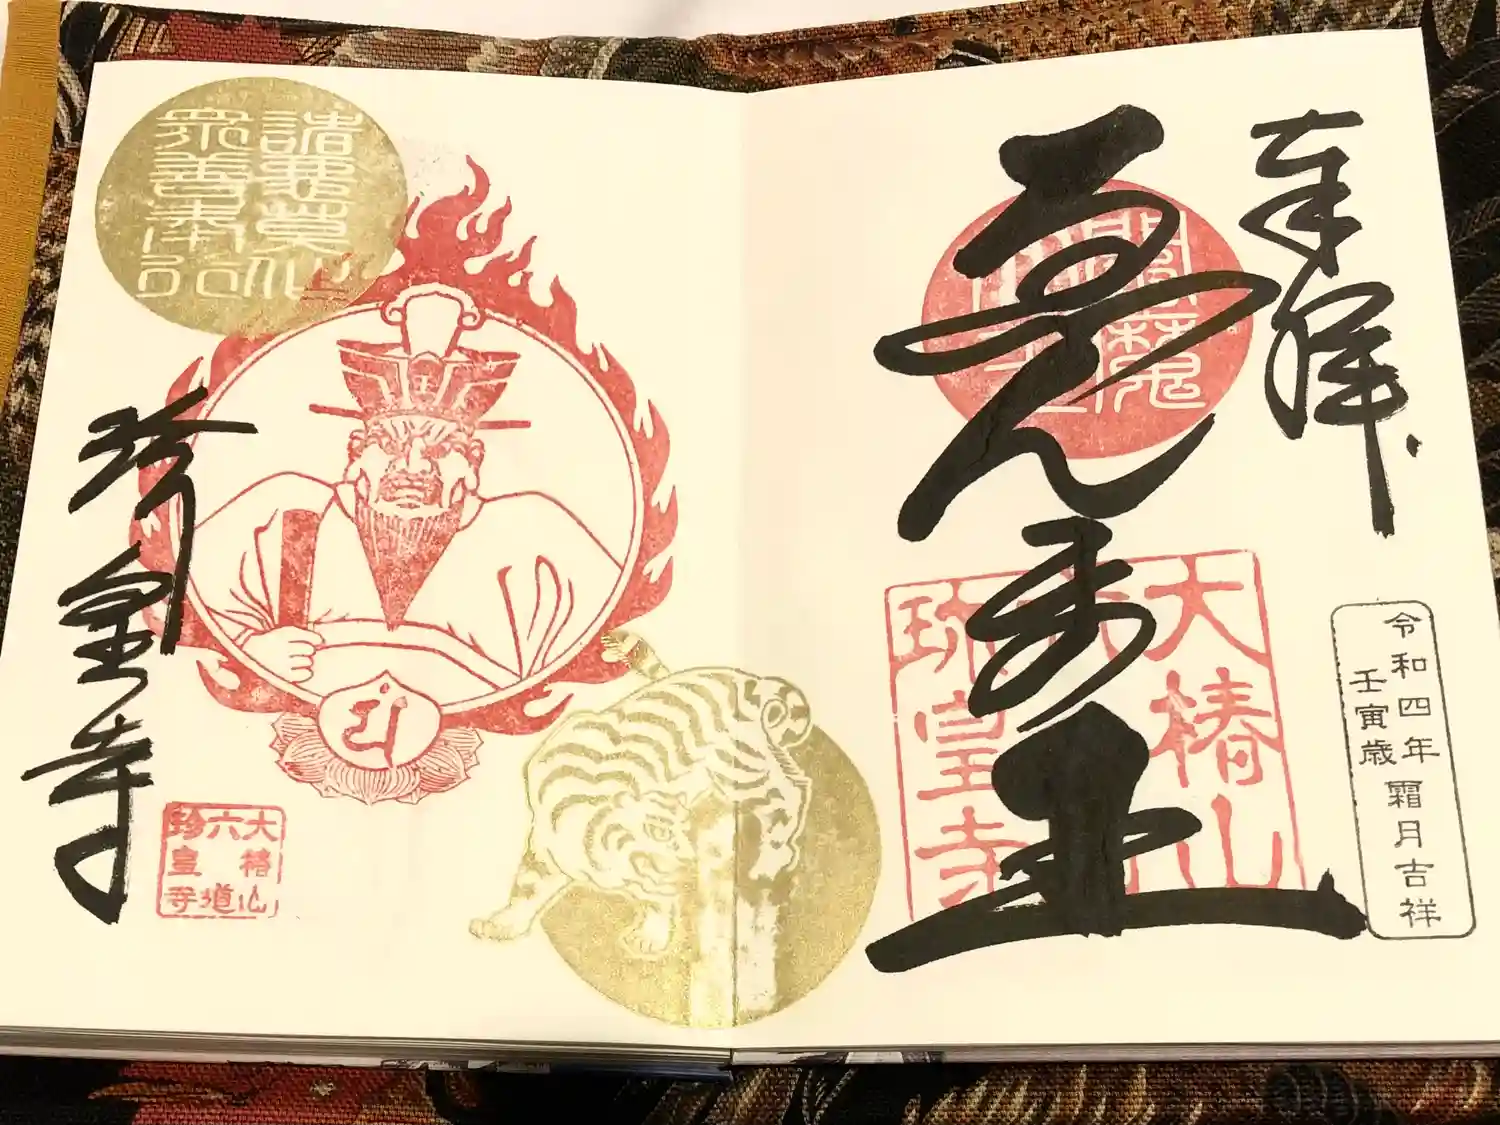 奉拝
令和四年 霜月吉祥
壬寅歳
ゑんま王
閻魔
大椿山
珍皇寺
諸悪莫作
衆善奉行
珍皇寺
大椿山
六道
珍皇寺